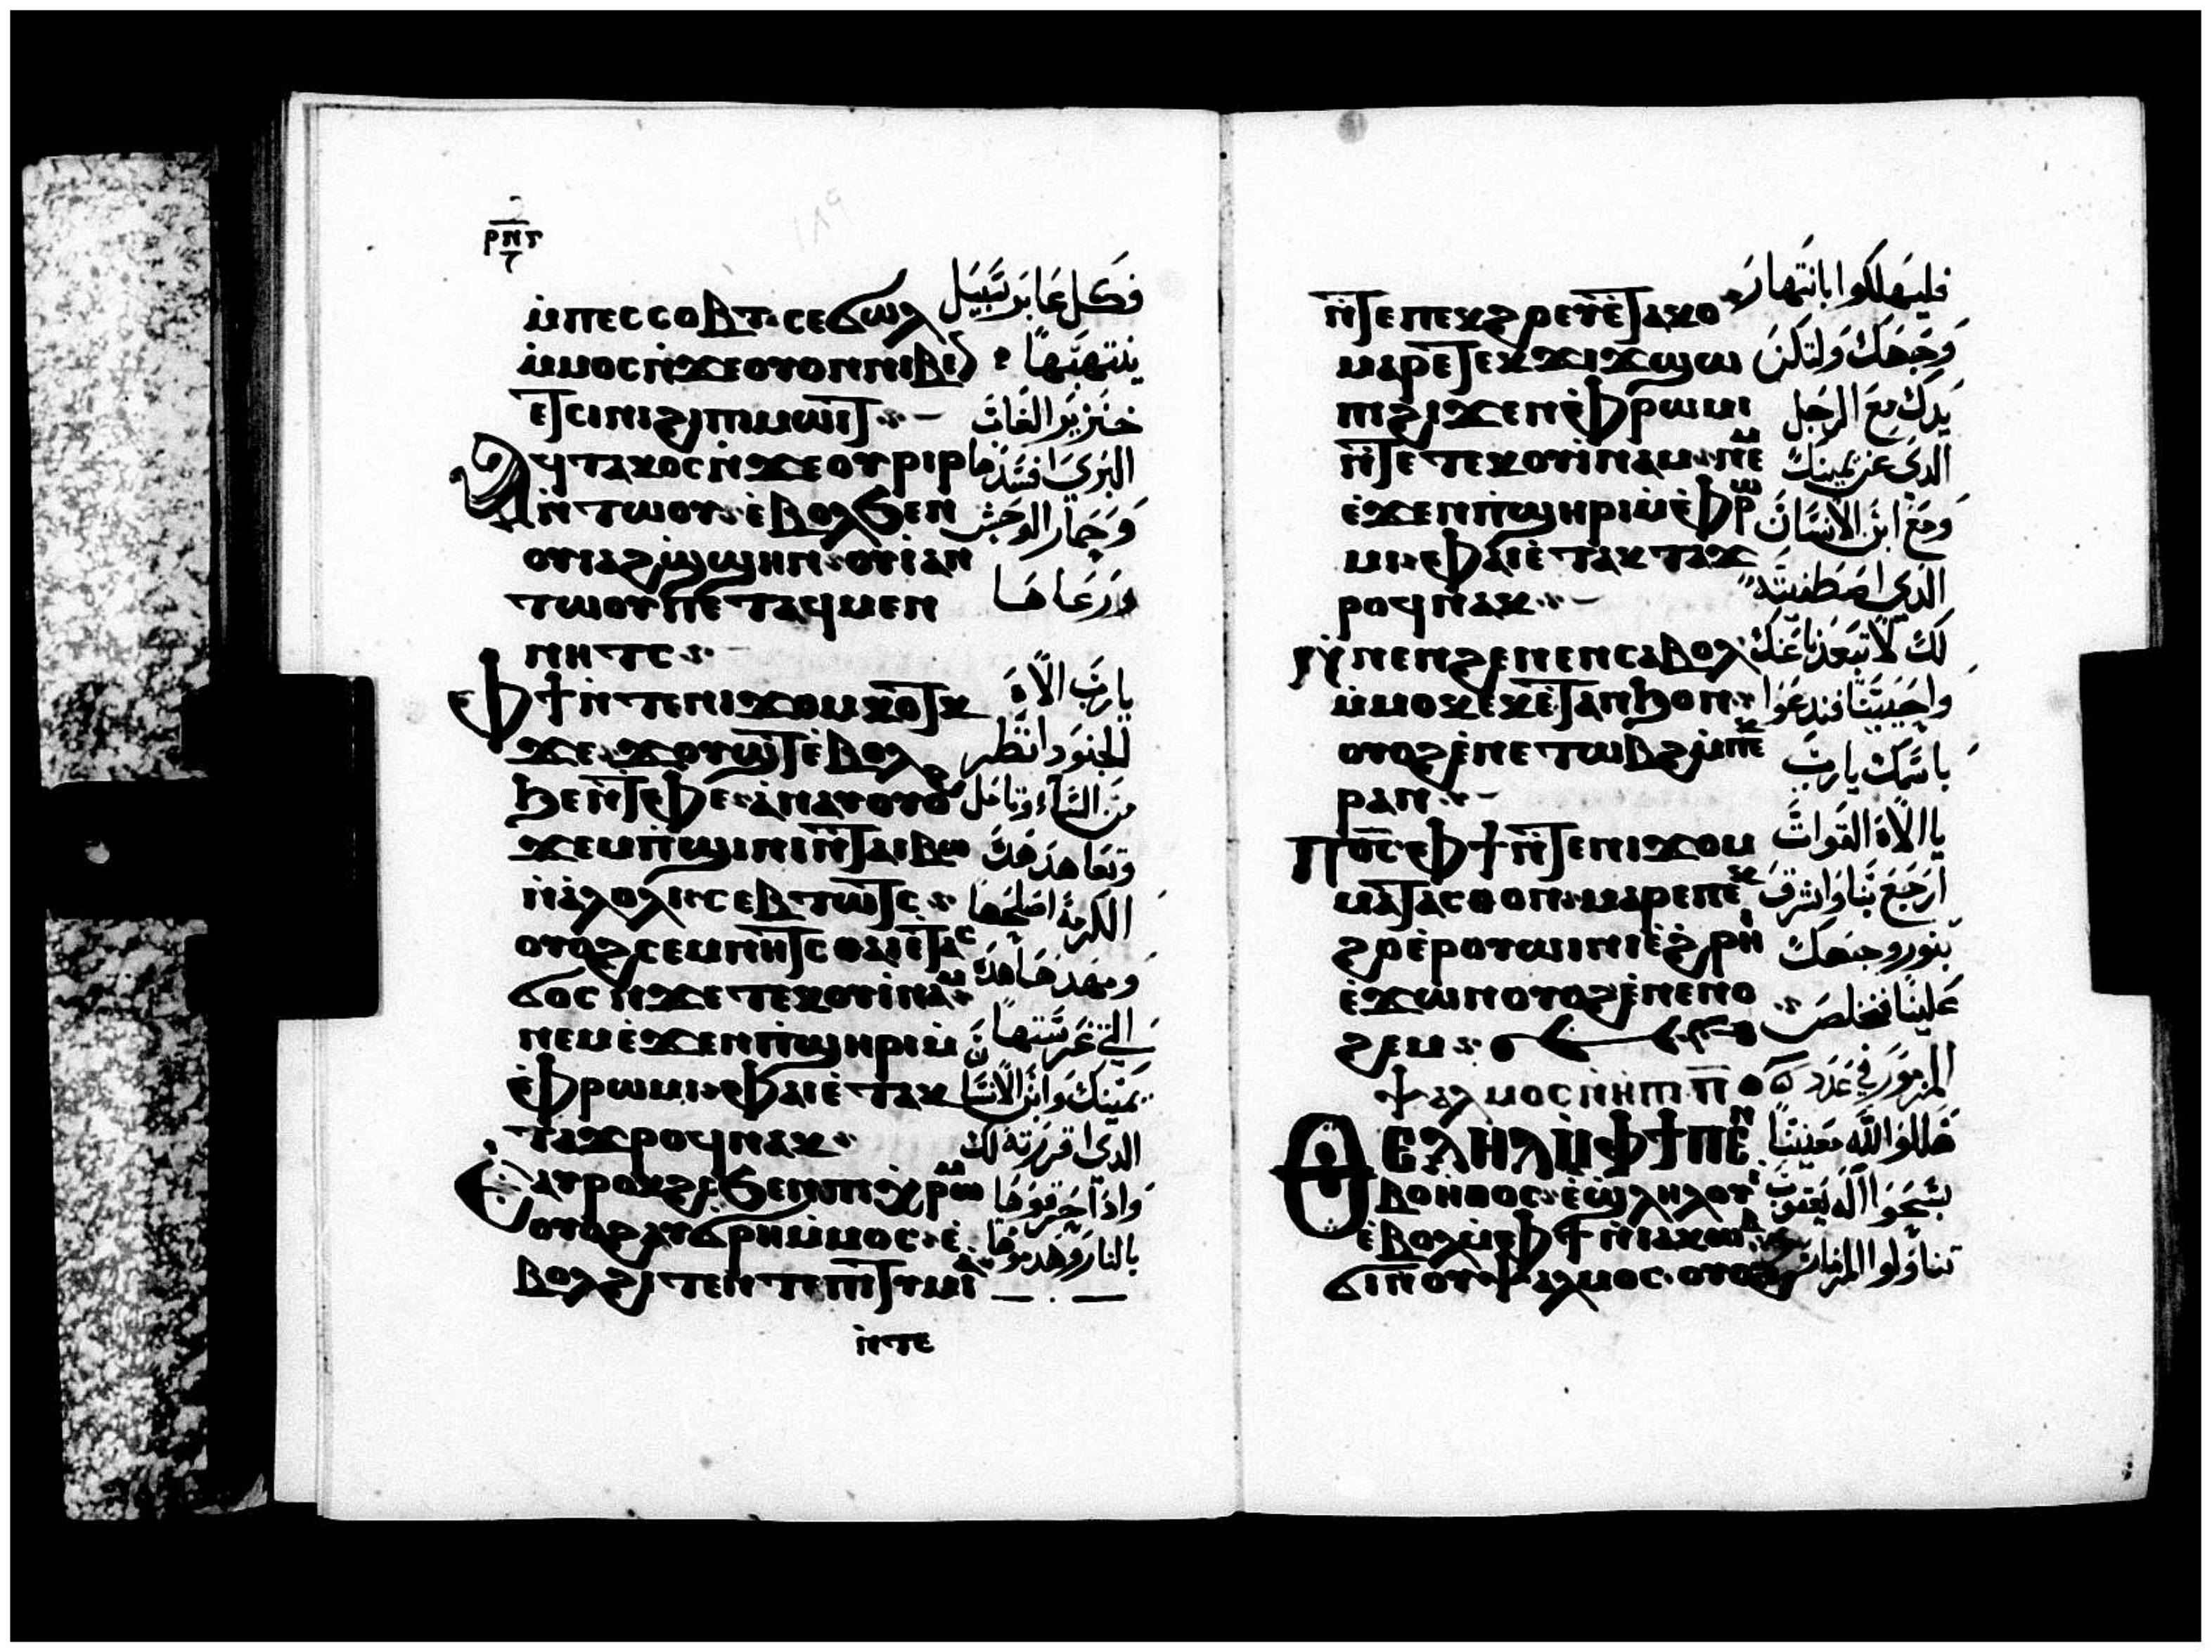 ⲣⲛⲅ
ⲙ̇ⲡⲉⲥⲥⲟⲃⲧ· ⲥⲉϭⲱⲗ فكل عابر سبيل
ⲙ̇ⲙⲟⲥ ⲛ̇ϫⲉ ⲟⲩⲟⲛ ⲛⲓⲃⲉⲛ ينتهبها
ⲉⲧⲥⲓⲛⲓ ϩⲓ ⲡⲓⲙⲱⲓⲧ خنزير الغاب
ⲁϥⲧⲁⲕⲟⲥ ⲛ̇ϫⲉ ⲟⲩⲣⲓⲣ البري افسدها
ⲛ̇ⲧⲱⲟⲩ ⲉ̇ⲃⲟⲗ ϧⲉⲛ وحمار الوحش
ⲟⲩⲓⲁϩϣ̇ϣⲏⲛ ⲟⲩⲓⲁⲛ
ⲧⲱⲟⲩ ⲡⲉⲧⲁϥⲙⲉⲛ ورعاها
ⲛⲏⲧⲥ
ⲫϯ ⲛ̇ⲧⲉ ⲛⲓϫⲟⲙ ⲕⲟⲧⲕ يارب الاه
ϫⲉ ϫⲟⲩϣⲧ ⲉ̇ⲃⲟⲗ الجنود انظر
ϧⲉⲛ ⲧⲫⲉ ⲁ̇ⲛⲁⲩ ⲟⲩⲟϩ من السماء وتامل
ϫⲉⲙⲡ̇ϣⲓⲛⲓ ⲛ̇ⲧⲁⲓⲃⲱ وتعاهد هذه
ⲛ̇ⲁ̇ⲗⲟⲗⲓ ⲥⲉⲃⲧⲱⲧⲥ الكرمة اصلحها
ⲟⲩⲟϩ ⲥⲉⲙⲛⲏⲧⲥ ⲑⲁⲓ ⲉ̇ⲧⲁⲥ ومهدها هذه
ϭⲟⲥ ⲛ̇ϫⲉ ⲧⲉⲕⲟⲩⲓ̇ⲛⲁⲙ
ⲛⲉⲙ ⲉ̇ϫⲉⲛ ⲡ̇ϣⲏⲣⲓ ⲙ̇ التي غرستها
ⲫ̇ⲣⲱⲙⲓ ⲫⲁⲓ ⲉ̇ⲧⲁⲕ يمينك وابن الانسان
ⲧⲁϫⲣⲟϥ ⲛⲁⲕ الذي قررته لك
ⲉ̇ⲁⲩⲣⲟⲕϩⲥ ϧⲉⲛ ⲡⲓⲭ̇ⲣⲱⲙ واذا حرقوها
ⲟⲩⲟϩ ⲁⲩϭⲣⲏ ⲙ̇ⲙⲟⲥ ⲉ̇ بالنار وهدموها
ⲃⲟⲗ ϩⲓⲧⲉⲛ ⲧⲉⲡⲓⲧⲓⲙⲓⲁ
ⲛ̇ⲧⲉ
ⲛ̇ⲧⲉ ⲡⲉⲕϩⲣⲉⲩⲉ̇ⲧⲁⲕⲟ فليهلكوا بانتهار
ⲙⲁⲣⲉ ⲧⲉⲕϫⲓϫ ϣⲱ وجهك ولتكن
ⲡⲓ ϩⲓϫⲉⲛ ⲫ̇ⲣⲱⲙⲓ يدك مع الرجل
ⲛ̇ⲧⲉ ⲧⲉⲕⲟⲩⲓ̇ⲛⲁⲙ ⲛⲉⲙ الذي عن يمينك
ⲉ̇ϫⲉⲛ ⲡ̇ϣⲏⲣⲓ ⲙ̇ⲫ̇ⲣⲱ ومع ابن الانسان
ⲙⲓ ⲫⲁⲓ ⲉ̇ⲧⲁⲕⲧⲁϫ الذي اصطفيته
ⲣⲟϥ ⲛⲁⲕ
ⲛ̇ⲛⲉⲛϩⲉⲛⲉⲛ ⲥⲁⲃⲟⲗ لك لا تبعدنا عنك
ⲙ̇ⲙⲟⲕ ⲉⲕⲉ̇ⲧⲁⲛϧⲟⲛ واحيينا فندعوا
ⲟⲩⲟϩ ⲉ̇ⲛⲉⲧⲱⲃϩ ⲙ̇ⲡⲉⲕ باسمك يارب
ⲣⲁⲛ
ⲡⲟ̅ⲥ̅ ⲫϯ ⲛ̇ⲧⲉ ⲛⲓϫⲟⲙ يا الاه القوات
ⲙⲁⲧⲁⲥⲑⲟⲛ ⲙⲁⲣⲉ ⲡⲉⲕ ارجع بنا واشرق
ϩⲟ ⲉⲣⲟⲩⲱⲓⲛⲓ ⲉ̇ϩ̇ⲣⲏⲓ بنور وجهك
ⲉ̇ϫⲱⲛ ⲟⲩⲟϩ ⲉ̇ⲛⲉⲛⲟ علينا فنخلص
ϩⲉⲙ
ⲯⲁⲗⲙⲟⲥ ⲛ̇ⲏⲡⲓ ⲡ̅ المزمور في عدد
ⲑⲉⲗⲏⲗ ⲙ̇ⲫϯ ⲡⲉⲛ هللوا لله معيننا
ⲃⲟⲏ̇ⲑⲟⲥ ⲉ̇ϣⲗⲏⲗⲟⲩⲓ̇ سبحوا اله يعقوب
ⲉ̇ⲃⲟⲗ ⲙ̇ⲫϯ ⲛ̇ⲓⲁⲕⲱⲃ
ϭⲓ ⲛ̇ⲟⲩⲯⲁⲗⲙⲟⲥ ⲟⲩⲟϩ تناولوا المزمار